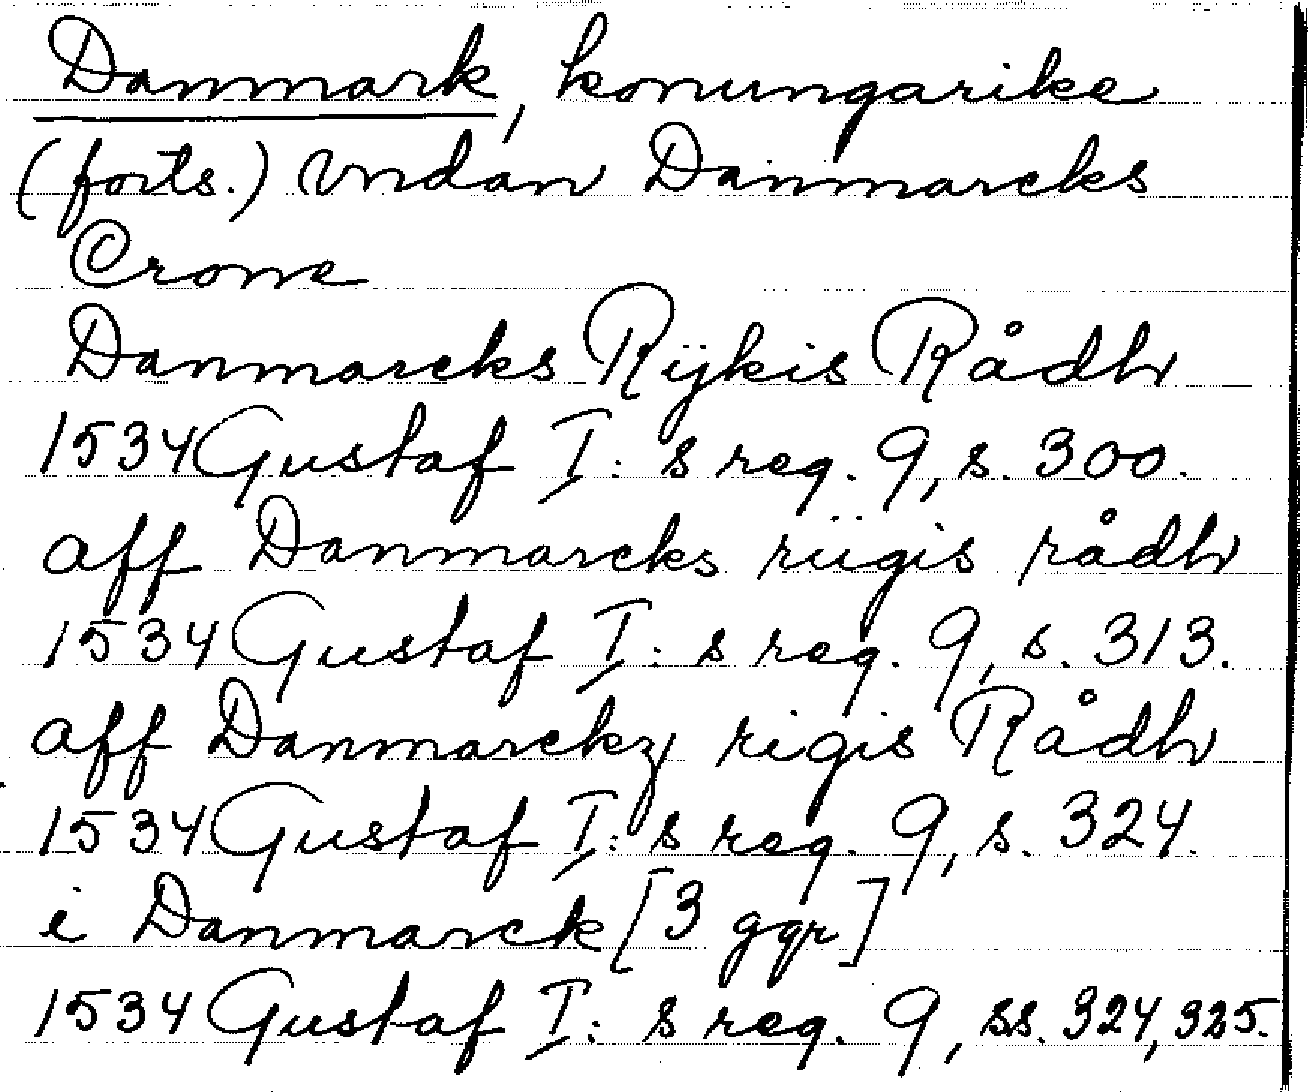 Danmark, konungarike
(forts.) Vndan Danmarcks
Crone
Danmarcks Rÿkis Rådh
1534 Gustaf I: s reg. 9, s. 300.
aff Danmarcks riigis rådh
1534 Gustaf I: s reg. 9, s. 313.
aff Danmarckz rigis Rådh
1534 Gustaf I: s reg. 9, s. 324.
i Danmarck [3 ggr]
1534 Gustaf I: s reg. 9, ss. 324, 325.